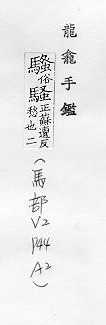 龍龕手鑑
騷俗騷正蘇遭反
愁也二
(馬部V2
P44
A2)